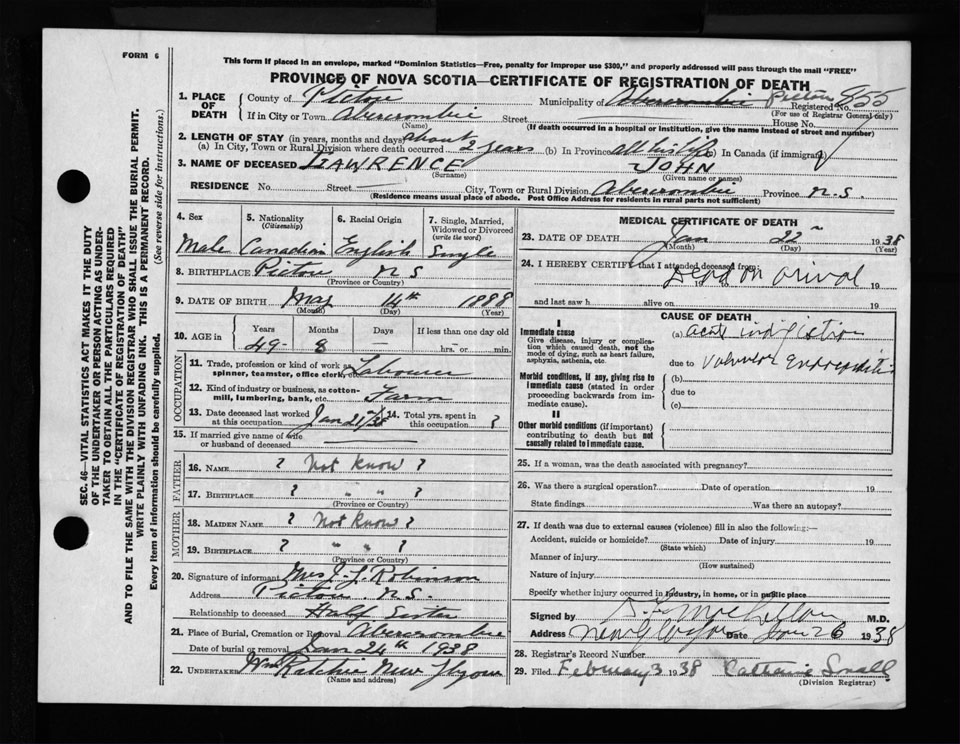 FORM 6
This form if placed in an envelope, marked "Dominion Statistics—Free, penalty for improper use $300," and properly addressed will pass through the mail "FREE"
PROVINCE OF NOVA SCOTIA—CERTIFICATE OF REGISTRATION OF DEATH
SEC. 46—VITAL STATISTICS ACT MAKES IT THE DUTY
OF THE UNDERTAKER OR PERSON ACTING AS UNDER-
TAKER TO OBTAIN ALL THE PARTICULARS REQUIRED
IN THE "CERTIFICATE OF REGISTRATION OF DEATH"
AND TO FILE THE SAME WITH THE DIVISION REGISTRAR WHO SHALL ISSUE THE BURIAL PERMIT.
WRITE PLAINLY WITH UNFADING INK. THIS IS A PERMANENT RECORD.
Every item of information should be carefully supplied. (See reverse side for instructions.)
1. PLACE OF DEATH
County of Pictou Municipality of Abercrombie Pictou Registered No. 855
(For use of Registrar General only)
If in City or Town Abercrombie Street House No.
(Name) (If death occurred in a hospital or institution, give the name instead of street and number)
2. LENGTH OF STAY (in years, months and days) about
(a) In City, Town or Rural Division where death occurred 2 years (b) In Province all his life (c) In Canada (if immigrant)
3. NAME OF DECEASED LAWRENCE JOHN
(Surname) (Given name or names)
RESIDENCE No. Street City, Town or Rural Division Abercrombie Province N.S.
(Residence means usual place of abode. Post Office Address for residents in rural parts not sufficient)
4. Sex 5. Nationality (Citizenship) 6. Racial Origin 7. Single, Married, Widowed or Divorced (write the word)
Male Canadian English Single
8. BIRTHPLACE Pictou N S
(Province or Country)
9. DATE OF BIRTH May 14th 1888
(Month) (Day) (Year)
10. AGE in Years Months Days If less than one day old
49 8 — hrs. or min.
OCCUPATION
11. Trade, profession or kind of work as spinner, teamster, office clerk, etc. Labourer
12. Kind of industry or business, as cotton-mill, lumbering, bank, etc. Farm
13. Date deceased last worked at this occupation Jan 21st/38 14. Total yrs. spent in this occupation ?
15. If married give name of wife or husband of deceased
FATHER
16. NAME ? Not Know ?
17. BIRTHPLACE ? " " ?
(Province or Country)
MOTHER
18. MAIDEN NAME ? Not Know ?
19. BIRTHPLACE ? " " ?
(Province or Country)
20. Signature of informant Mrs J. Robinson
Address Pictou N.S.
Relationship to deceased Half Sister
21. Place of Burial, Cremation or Removal Abercrombie
Date of burial or removal Jan 24th 1938
22. UNDERTAKER Wm Ritchie New Glasgow
(Name and address)
MEDICAL CERTIFICATE OF DEATH
23. DATE OF DEATH Jan 22 1938
(Month) (Day) (Year)
24. I HEREBY CERTIFY that I attended deceased from:
Dead on arival
19 19
and last saw h alive on 19
CAUSE OF DEATH
I
Immediate cause
Give disease, injury or complication which caused death, not the mode of dying, such as heart failure, asphyxia, asthenia, etc.
(a) acute indigestion
due to valvular Endocarditis
Morbid conditions, if any, giving rise to immediate cause (stated in order proceeding backwards from immediate cause).
(b)
due to
(c)
II
Other morbid conditions (if important) contributing to death but not causally related to immediate cause.
25. If a woman, was the death associated with pregnancy?
26. Was there a surgical operation? Date of operation 19
State findings Was there an autopsy?
27. If death was due to external causes (violence) fill in also the following:—
Accident, suicide or homicide? Date of injury 19
(State which)
Manner of injury
(How sustained)
Nature of injury
Specify whether injury occurred in industry, in home, or in public place
Signed by M.D.
Address New Glasgow Date Jan 26 1938
28. Registrar's Record Number
29. Filed February 3 1938 Catharine Small
(Division Registrar)